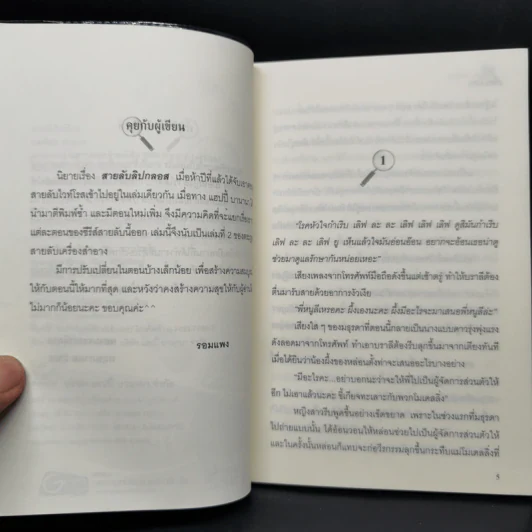 คุยกับผู้เขียน
นิยายเรื่อง สายลับลิปกลอส เมื่อห้าปีที่แล้วได้จับเอา
สายลับไวท์โรสเข้าไปอยู่ในเล่มเดียวกัน เมื่อทาง แฮปปี้ บานานา
นำมาตีพิมพ์ซ้ำ และมีตอนใหม่เพิ่ม จึงมีความคิดที่จะแยกเรื่อง
แต่ละตอนของซีรีส์สายลับนี้ออก เล่มนี้จึงนับเป็นเล่มที่ 2 ของ
สายลับเครื่องสำอาง
มีการปรับเปลี่ยนในตอนบ้างเล็กน้อย เพื่อสร้างความสมบูรณ์
ให้กับตอนนี้ให้มากที่สุด และหวังว่าคงสร้างความสุขให้กับผู้อ่าน
ไม่มากก็น้อยนะคะ ขอบคุณค่ะ^^
รอมแพง
1
"โรคหัวใจกำเริบ เลิฟ ละ ละ เลิฟ เลิฟ เลิฟ ดูสิมันกำเริบ
เลิฟ ละ ละ เลิฟ ยู เห็นแล้วใจมันอ่อนอ้อน อยากจะอ้อนเธอน่าดู
ช่วยมาดูแลรักษากันหน่อยเหอะ"
เสียงเพลงจากโทรศัพท์มือถือดังขึ้นแต่เช้าตรู่ ทำให้บราลีต้อง
ตื่นมารับสายด้วยอาการงัวเงีย
"พี่หนูลีเหรอคะ ผึ้งเองนะคะ ผึ้งมีอะไรจะมาเสนอพี่หนูลีล่ะ"
เสียงใส ๆ ของมธุรดาที่ตอนนี้กลายเป็นนางแบบดาวรุ่งพุ่งแรง
ดังลอดมาจากโทรศัพท์ ทำเอาบราลีต้องรีบลุกขึ้นมาจากเตียงทันที
เมื่อได้ยินว่าน้องผึ้งของหล่อนตั้งท่าจะเสนออะไรบางอย่าง
"มีอะไรคะ...อย่าบอกนะว่าจะให้พี่ไปเป็นผู้จัดการส่วนตัวให้
อีก ไม่เอาแล้วนะคะ ขี้เกียจทะเลาะกับพวกโมเดลลิ่ง"
หญิงสาวรีบพูดขึ้นอย่างเข็ดขยาด เพราะในช่วงแรกที่มธุรดา
ไปถ่ายแบบนั้น ได้อ้อนวอนให้หล่อนช่วยไปเป็นผู้จัดการส่วนตัวให้
และในครั้งนั้นหล่อนก็แทบจะก่อวีรกรรมลุกขึ้นกระทืบแม่โมเดลลิ่งที่
5